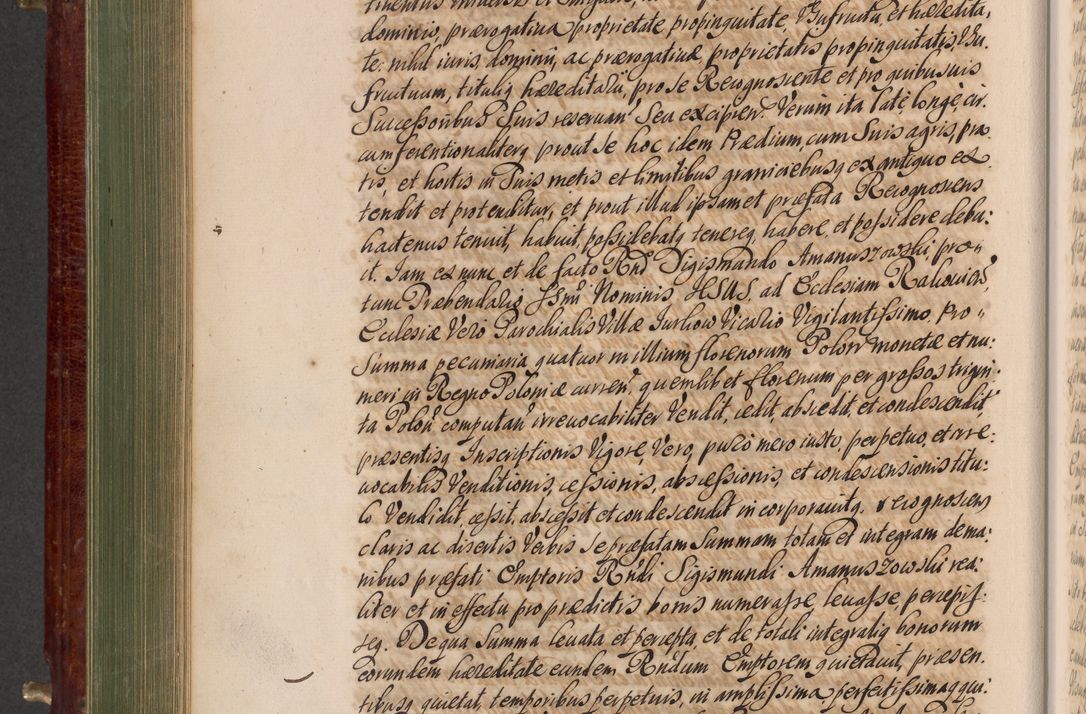 dominio, prærogativa proprietate propinquitate, Usufructu, et hæredita,
te: nihil iuris, dominii, ac prærogativæ proprietatis propinquitatis, Usu,
fructuum, tituliq hæreditarii, pro se Recognoscente et pro quibusuis
Successoribus Suis reseruan Seu excipien. Verum ita late, longe, cir,
cumferentionaliterq prout se hoc idem Prædium, cum Suis agris, pra,
tis, et hortis in Suis metis et limitibus graniciebusq ex antiquo ex,
tendit et protenditur, et prout illud ipsamet præfata Recognoscens
hactenus tenuit, habuit, possidebatq tenereq, habere, et possidere debu:
it. Iam ex nunc et de facto Rnd Sigismundo Amanuszowski, præ„
tunc Præbendario SSmi Nominis IESUS. ad Ecclesiam Rakovien,
Ecclesiæ Vero Parochialis Villæ Jurkow Vicario Vigilantissimo. Pro„
Summa pecuniaria quatuor millium florenorum Polon monetæ et nu:
meri in Regno Poloniæ curren, quemlibet florenum per grossos trigin:
ta Polon computan irreuocabiliter Vendit, cedit, abscedit, et condescendit,
præsentisq Inscriptionis Vigore, Vero, puro mero iusto, perpetuo, et irre:
uocabilis Venditionis, cessionis, abscessionis, et condescensionis titu:
lo Vendidit, cessit, abscessit et condescendit in corporauitq. recognoscens
claris ac disertis Verbis se præfatam Summam totam et integram de ma:
nibus præfati Emptoris Rndi Sigismundi Amanuszowski rea:
liter et in effectu pro prædictis bonis numerasse, leuasse, percepis:
seq. De qua Summa leuata et percepta, et de totali integraliq bonorum
eorundem hæreditate eundem Rndum Emptorem quietauit, præsen.
tibusq quietat, temporibus perpetuis, in amplissima, perfectissimaq qui: